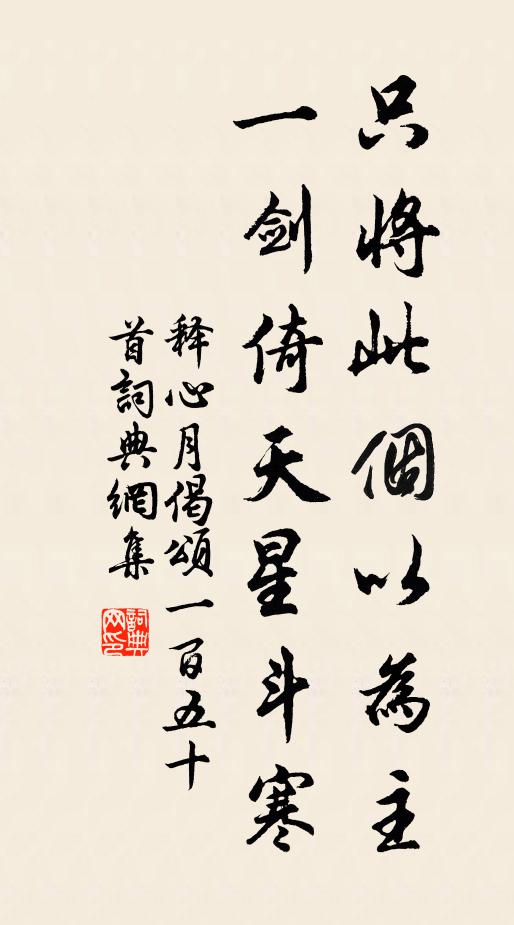 只將此個以為主
一劍倚天星斗寒
释心月偈頌一百五十
首詞典網集
詞典
网印